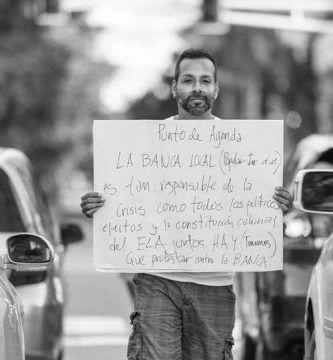 Punto de Agenda
LA BANCA LOCAL (Popular
es tan responsible de la
Crisis como todos los politicos
efectos y la constitucion colonial
del ELA juntos HAY (Tenemos)
Que protestar contra la BANCA